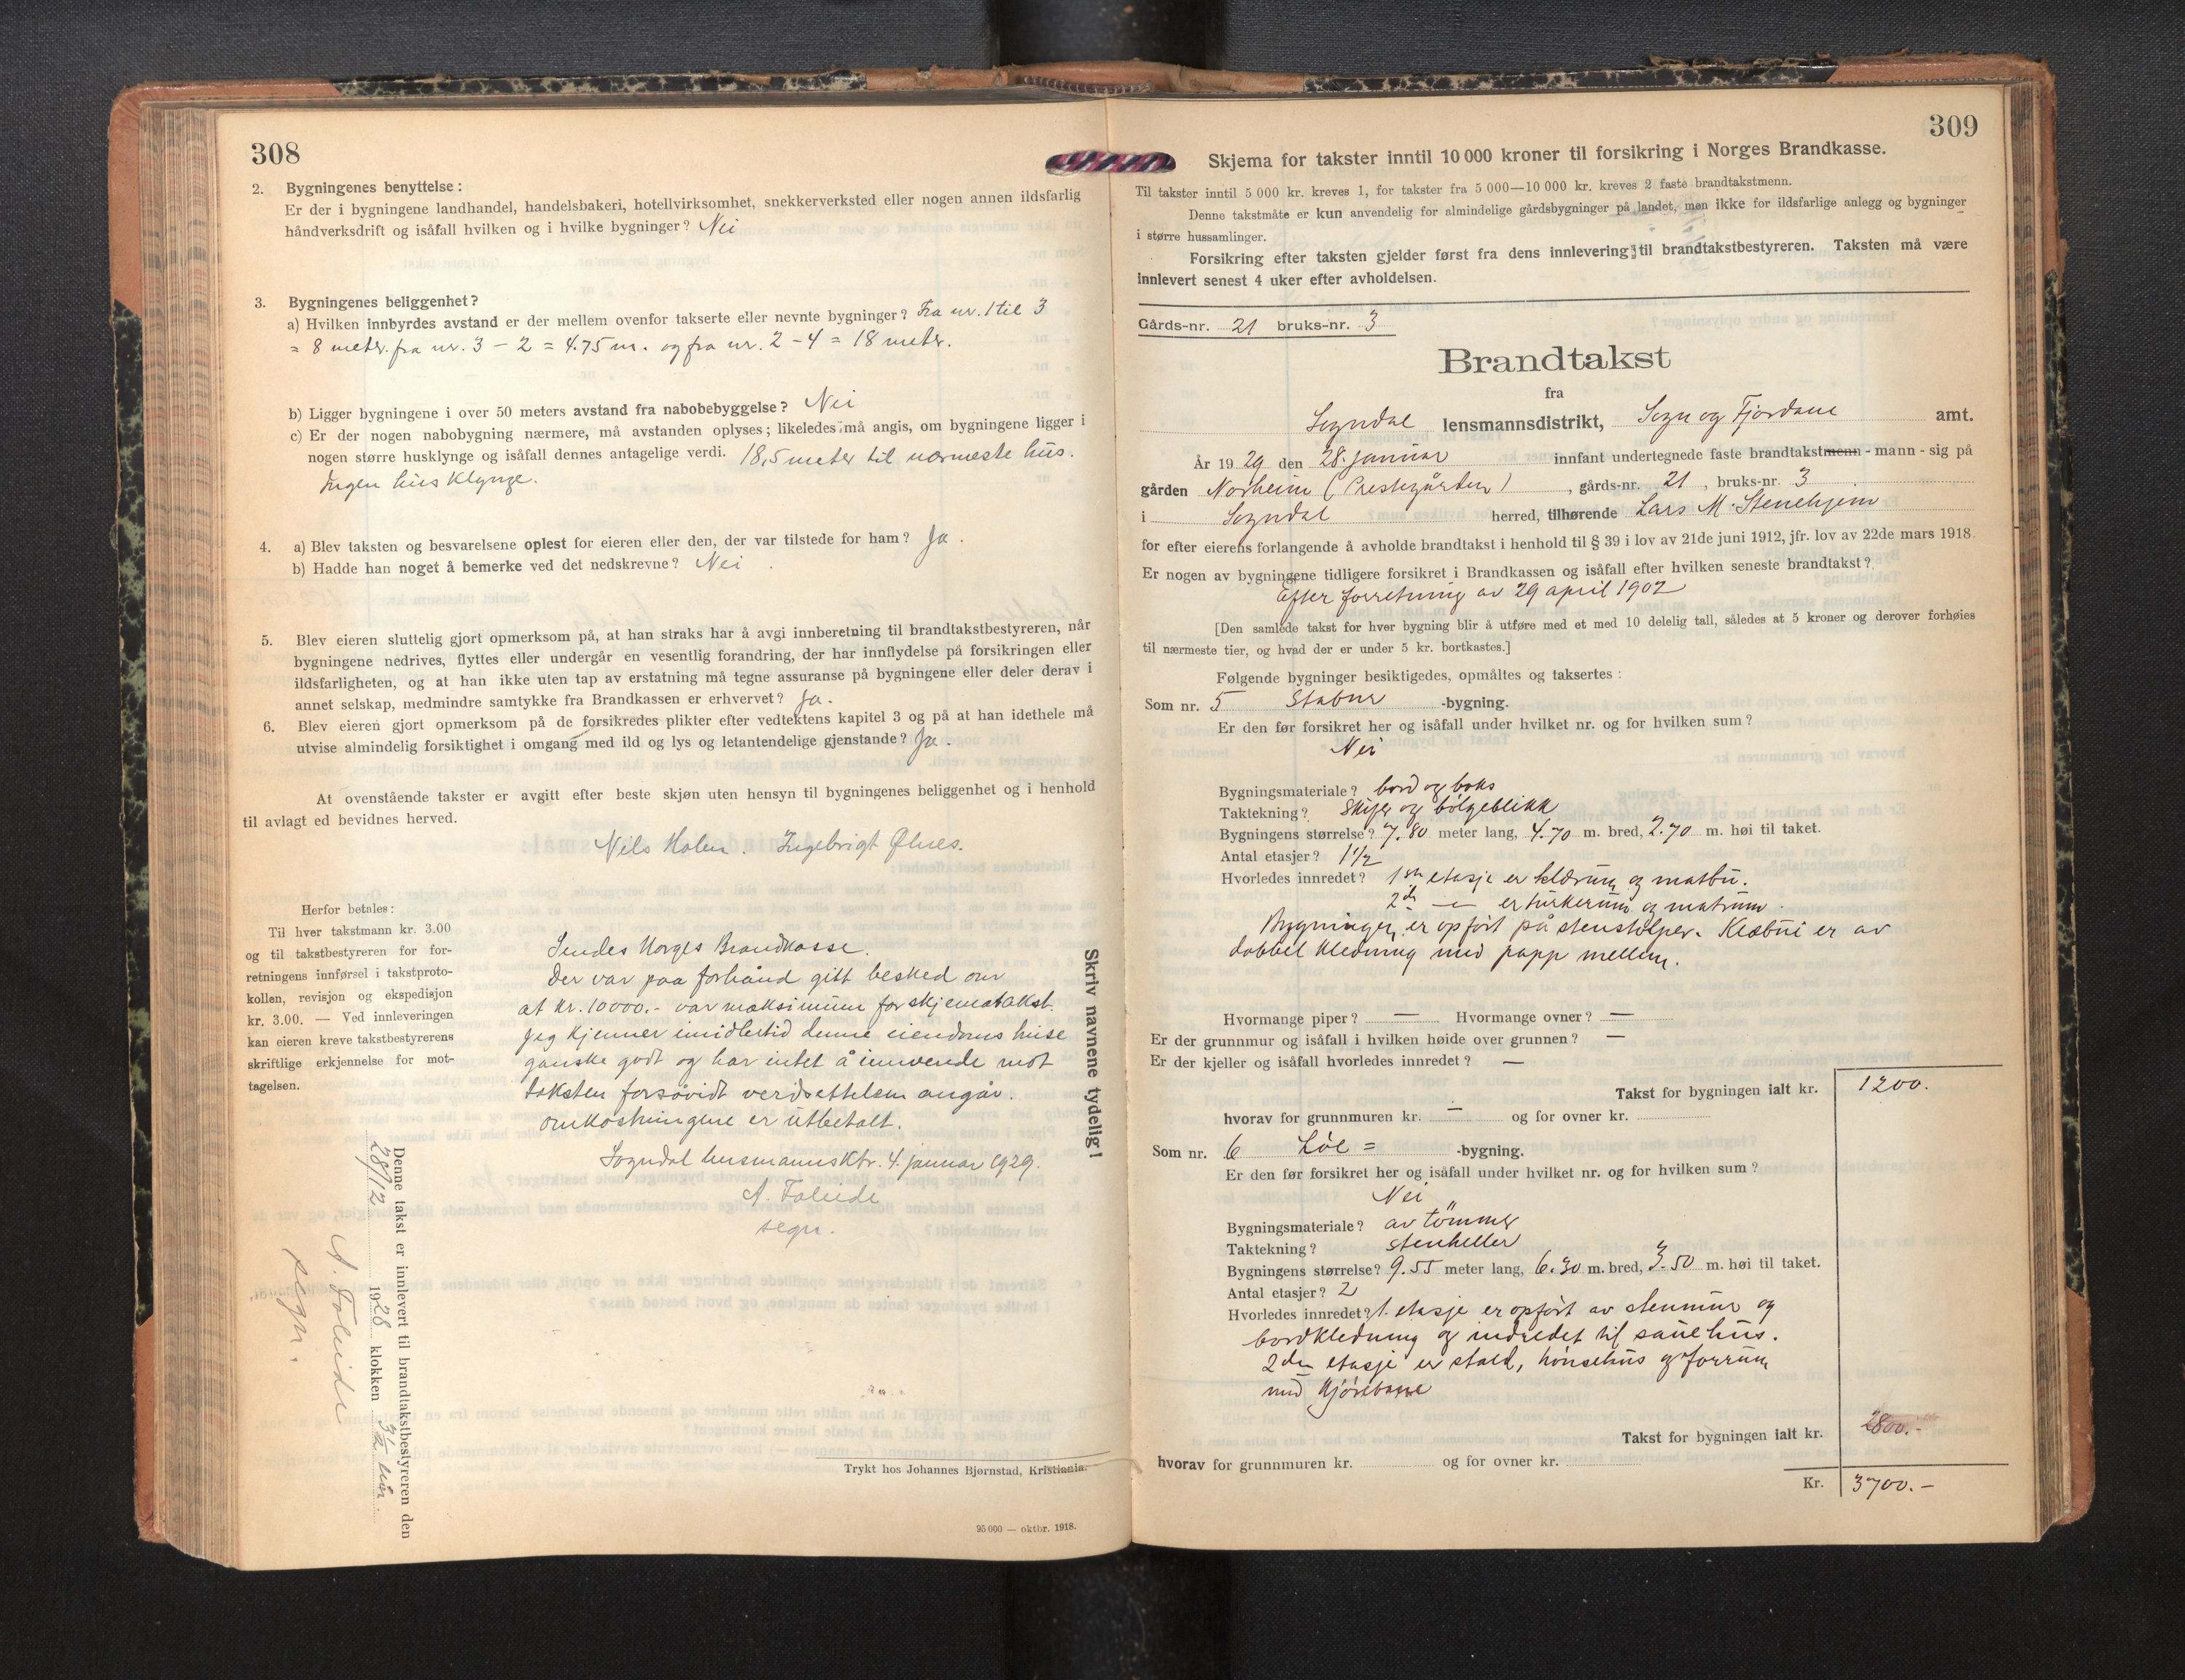 308
2. Bygningenes benyttelse:
Er der i bygningene landhandel, handelsbakeri, hotellvirksomhet, snekkerverksted eller nogen annen ildsfarlig
håndverksdrift og isåfall hvilken og i hvilke bygninger? Nei
3. Bygningenes beliggenhet?
a) Hvilken innbyrdes avstand er der mellem ovenfor takserte eller nevnte bygninger? Fra nr. 1 til 3
= 8 meter. fra nr. 3 – 2 = 4.75 m. og fra nr. 2 – 4 = 18 meter.
b) Ligger bygningene i over 50 meters avstand fra nabobebyggelse? Nei
c) Er der nogen nabobygning nærmere, må avstanden oplyses; likeledes må angis, om bygningene ligger i
nogen større husklynge og isåfall dennes antagelige verdi. 18,5 meter til nærmeste hus.
Ingen hus klynge.
4. a) Blev taksten og besvarelsene oplest for eieren eller den, der var tilstede for ham? Ja.
b) Hadde han noget å bemerke ved det nedskrevne? Nei.
5. Blev eieren sluttelig gjort opmerksom på, at han straks har å avgi innberetning til brandtakstbestyreren, når
bygningene nedrives, flyttes eller undergår en vesentlig forandring, der har innflydelse på forsikringen eller
ildsfarligheten, og at han ikke uten tap av erstatning må tegne assuranse på bygningene eller deler derav i
annet selskap, medmindre samtykke fra Brandkassen er erhvervet? Ja.
6. Blev eieren gjort opmerksom på de forsikredes plikter efter vedtektens kapitel 3 og på at han idethele må
utvise almindelig forsiktighet i omgang med ild og lys og letantendelige gjenstande? Ja.
At ovenstående takster er avgitt efter beste skjøn uten hensyn til bygningenes beliggenhet og i henhold
til avlagt ed bevidnes herved.
Nils Holen. Ingebrigt Ølnes.
Herfor betales:
Til hver takstmann kr. 3.00
og til takstbestyreren for for-
retningens innførsel i takstproto-
kollen, revisjon og ekspedisjon
kr. 3.00. — Ved innleveringen
kan eieren kreve takstbestyrerens
skriftlige erkjennelse for mot-
tagelsen.
Sendes Norges Brandkasse.
Der var paa forhånd gitt besked om
at kr. 10000.- var maksimum for skjematakst.
Jeg kjenner imidlertid denne eiendoms huse
ganske godt og har intet å innvende mot
taksten forsåvidt verdsettelsen angår.
Omkostningene er utbetalt.
Sogndal lensmannsktr. 4. januar 1929.
segn.
Skriv navnene tydelig!
Denne takst er innlevert til brandtakstbestyreren den
28/12 1928 klokken 3½
segn.
Trykt hos Johannes Bjørnstad, Kristiania.
95 000 — oktbr. 1918.
309
Skjema for takster inntil 10 000 kroner til forsikring i Norges Brandkasse.
Til takster inntil 5 000 kr. kreves 1, for takster fra 5 000—10 000 kr. kreves 2 faste brandtakstmenn.
Denne takstmåte er kun anvendelig for almindelige gårdsbygninger på landet, men ikke for ildsfarlige anlegg og bygninger
i større hussamlinger.
Forsikring efter taksten gjelder først fra dens innlevering til brandtakstbestyreren. Taksten må være
innlevert senest 4 uker efter avholdelsen.
Gårds-nr. 21 bruks-nr. 3
Brandtakst
fra
Sogndal lensmannsdistrikt, Sogn og Fjordane amt.
År 1929 den 28. januar innfant undertegnede faste brandtakstmenn - mann - sig på
gården Norheim (Prestegården), gårds-nr. 21, bruks-nr. 3
i Sogndal herred, tilhørende Lars M. Stenehjem
for efter eierens forlangende å avholde brandtakst i henhold til § 39 i lov av 21de juni 1912, jfr. lov av 22de mars 1918.
Er nogen av bygningene tidligere forsikret i Brandkassen og isåfall efter hvilken seneste brandtakst?
Efter forretning av 29 april 1902
[Den samlede takst for hver bygning blir å utføre med et med 10 delelig tall, således at 5 kroner og derover forhøies
til nærmeste tier, og hvad der er under 5 kr. bortkastes.]
Følgende bygninger besiktigedes, opmåltes og taksertes:
Som nr. 5 Stabur -bygning.
Er den før forsikret her og isåfall under hvilket nr. og for hvilken sum?
Nei
Bygningsmateriale? bord og boks
Taktekning? Skifer og bølgeblikk
Bygningens størrelse? 7.80 meter lang, 4.70 m. bred, 2.70 m. høi til taket.
Antal etasjer? 1½
Hvorledes innredet? 1ste etasje er klærum og matbu.
2den — er turkerum og matrum.
Bygningen er opført på stenstolper. Klæbui er av
dobbel kledning med papp mellem.
Hvormange piper? — Hvormange ovner? —
Er der grunnmur og isåfall i hvilken høide over grunnen? —
Er der kjeller og isåfall hvorledes innredet? —
Takst for bygningen ialt kr. 1200.
hvorav for grunnmuren kr. — og for ovner kr.
Som nr. 6 Løe = -bygning.
Er den før forsikret her og isåfall under hvilket nr. og for hvilken sum?
Nei
Bygningsmateriale? av tömmer
Taktekning? stenheller
Bygningens størrelse? 9.55 meter lang, 6.30 m. bred, 3.50 m. høi til taket.
Antal etasjer? 2
Hvorledes innredet? 1. etasje er opført av stenmur og
bordkledning og indredet til sauehus.
2den etasje er stald, hønsehus og forrum
med kjørebane
Takst for bygningen ialt kr. 2800.-
hvorav for grunnmuren kr. og for ovner kr.
Kr. 3700.-